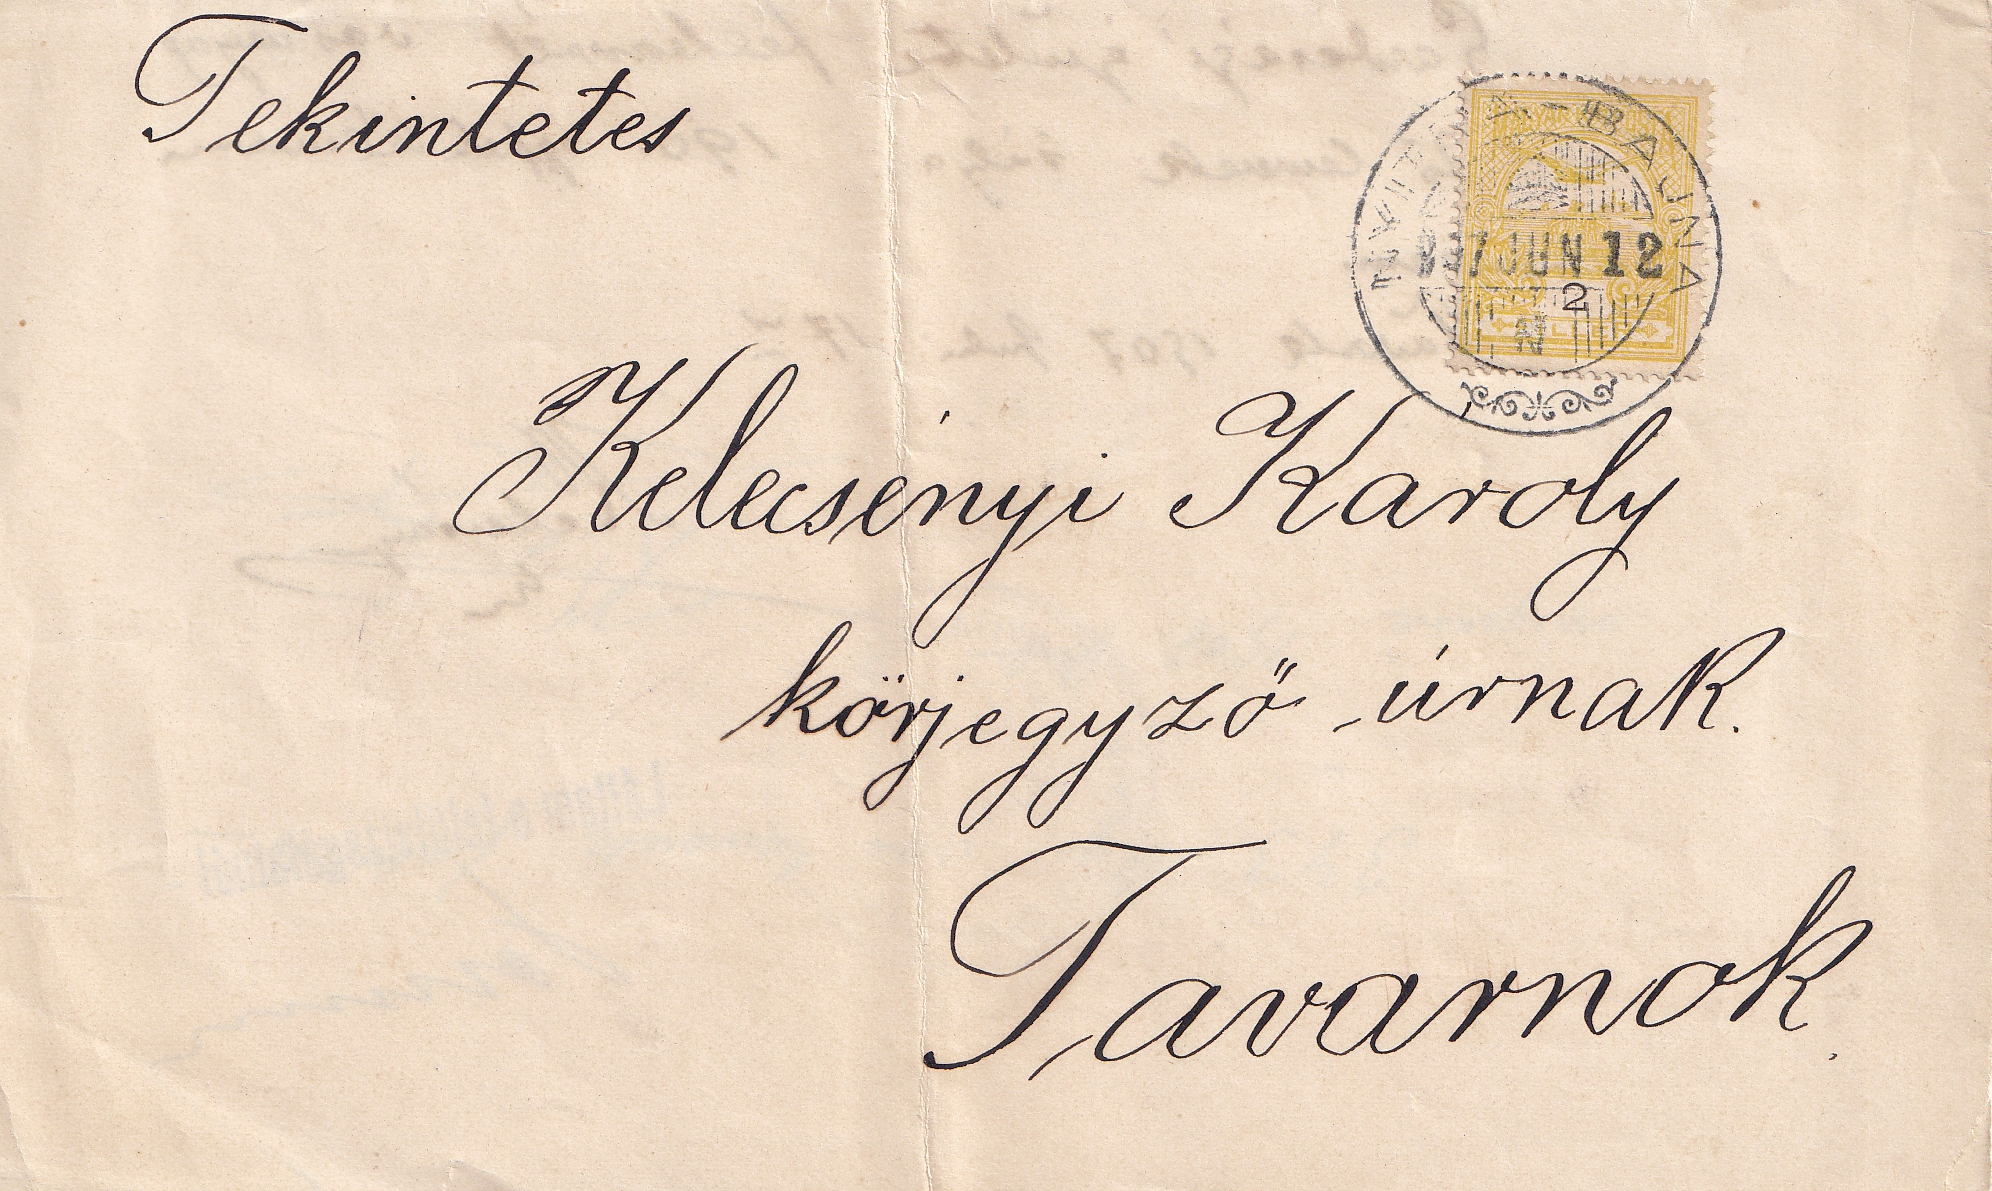 Tekintetes
NYITRA-BAJNA
907 JUN 12
N
2
Kelecsényi Karoly
körjegyző úrnak.
Tavarnok.